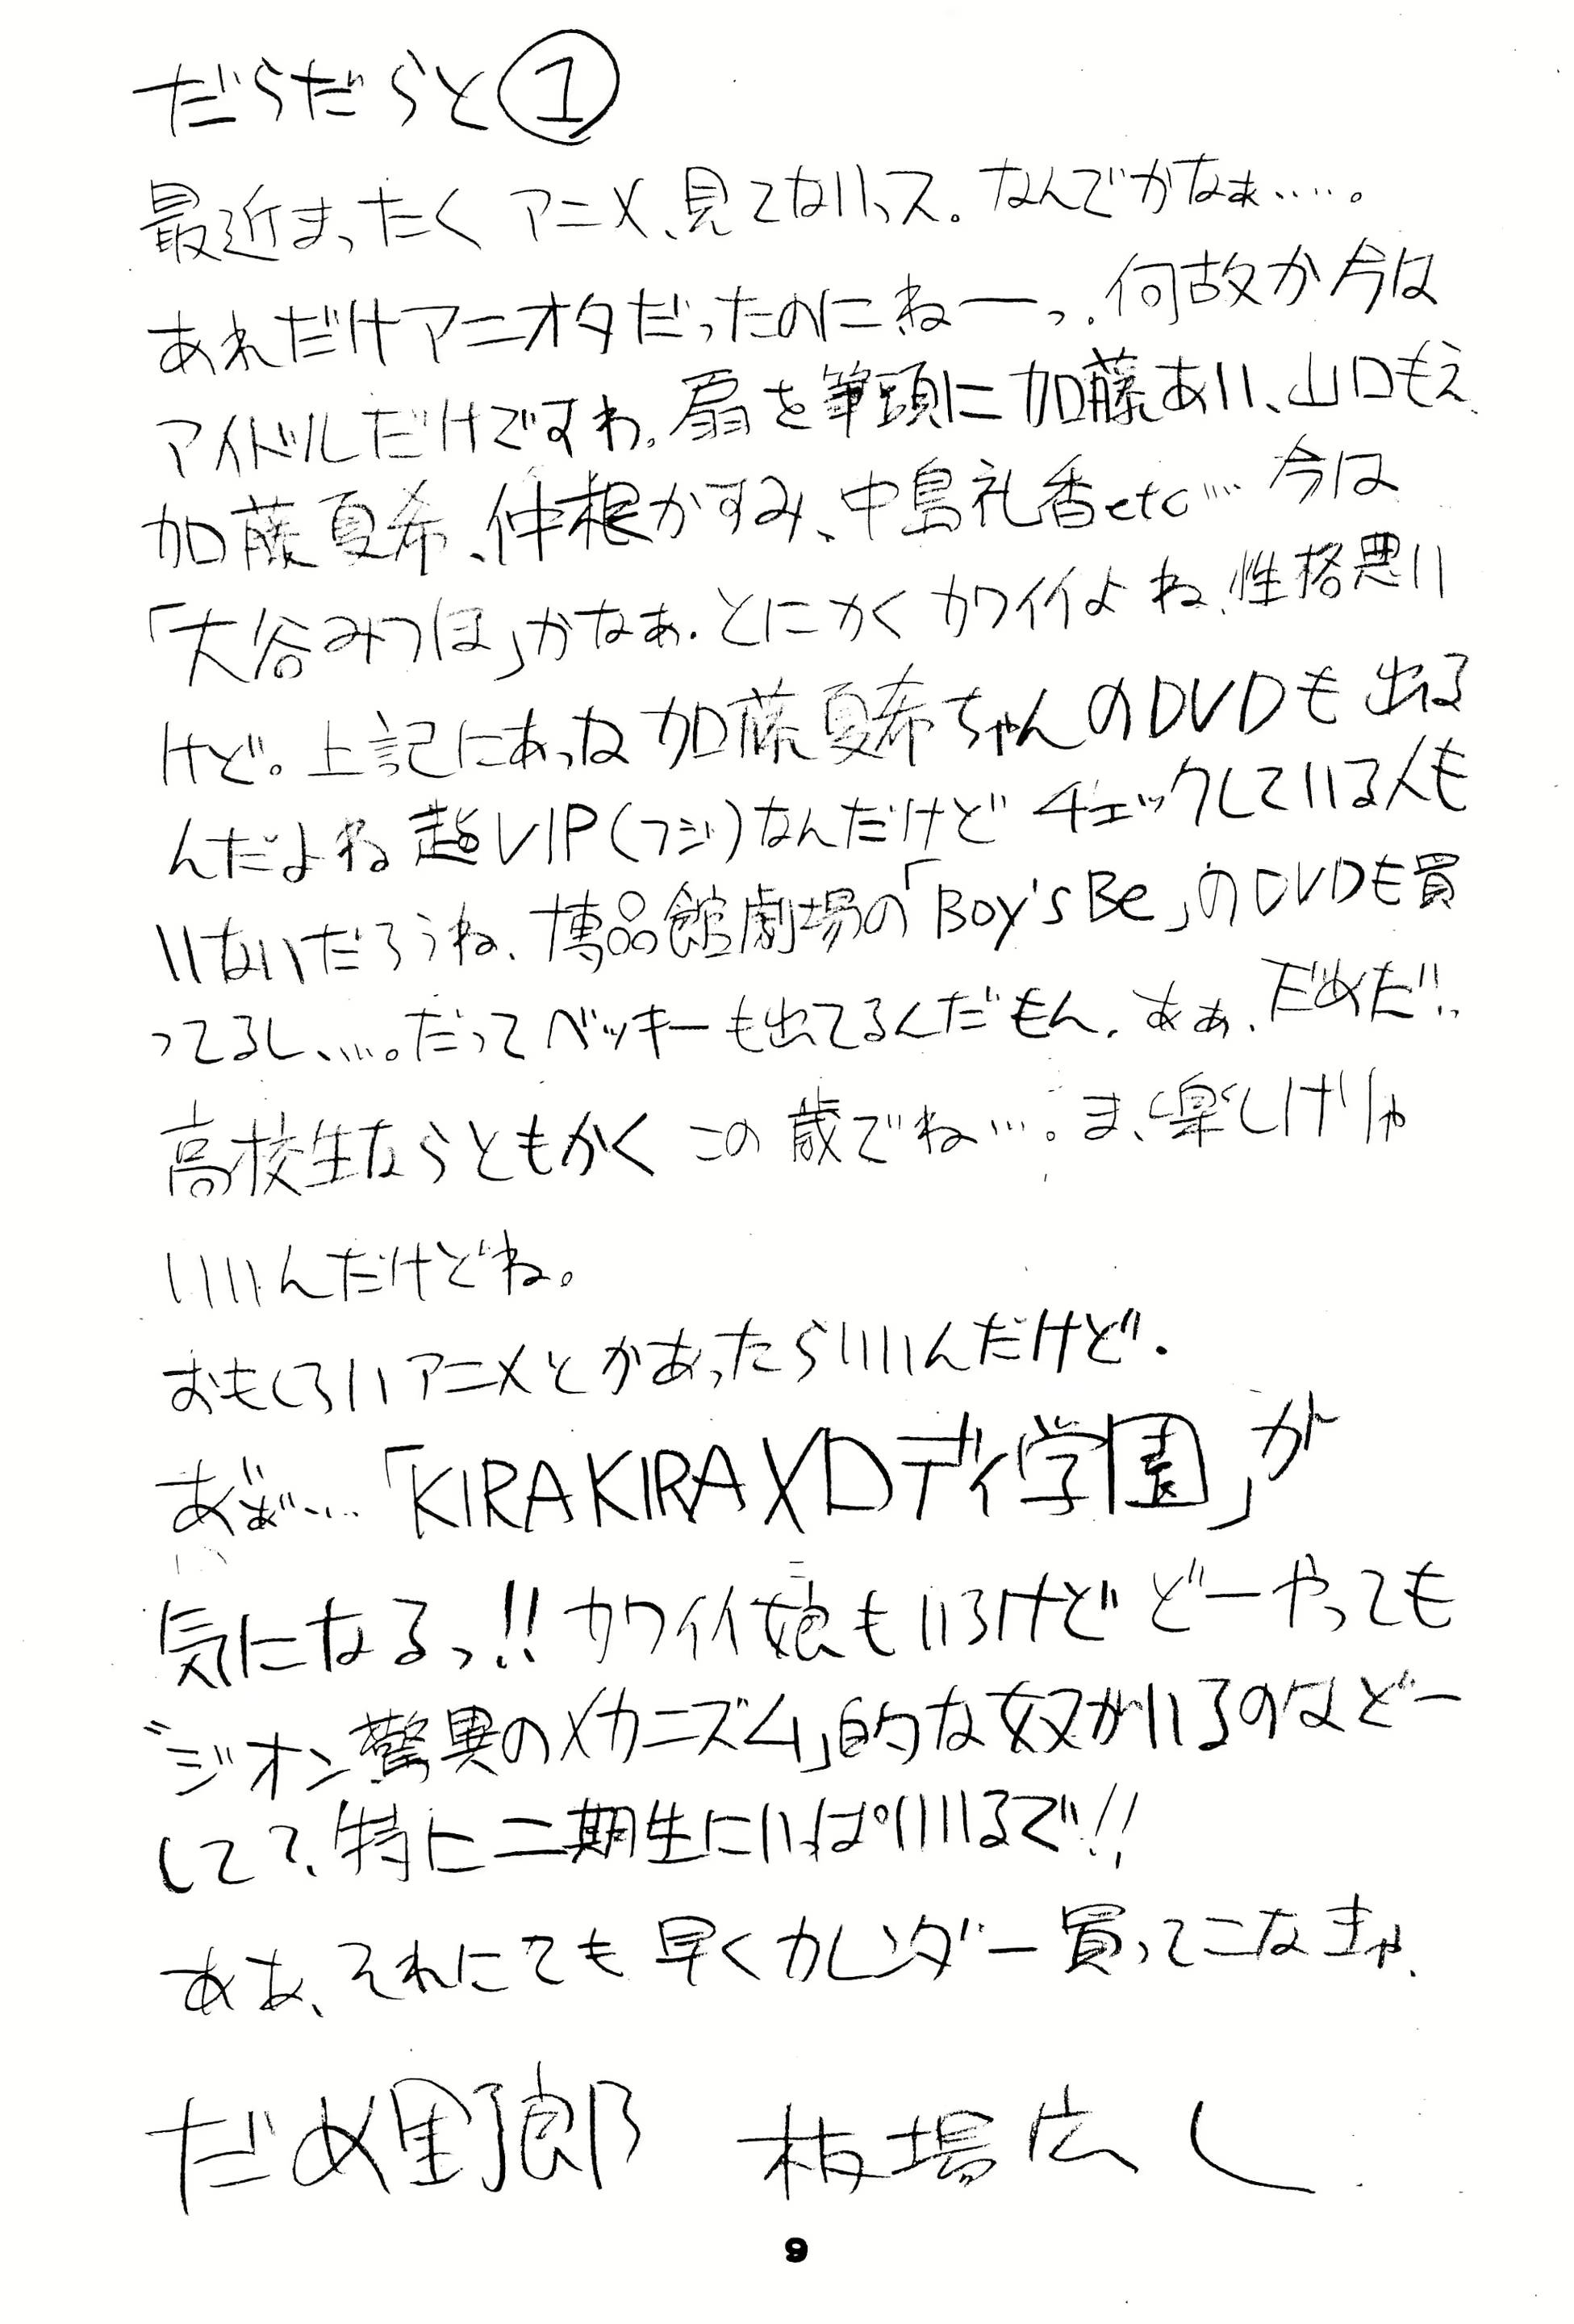 だらだらと①
最近まったくアニメ、見てないっス。なんでかなぁ・・・・・。
あれだけアニオタだったのにねーっ。何故か今は
アイドルだけですわ。扇を筆頭に加藤あい、山口もえ、
加藤夏希、仲根かすみ、中島礼香etc…今は
「大谷みつほ」かなぁ。とにかくカワイイよね、性格悪い
けど。上記にあった加藤夏希ちゃんのDVDも出る
んだよね 超VIP(フジ)なんだけどチェックしている人も
いないだろうね、博品館劇場の「Boy's Be」のDVDも買
ってるし、…。だってベッキーも出てるんだもん。あぁ、だめだ!!
高校生ならともかくこの歳でね…。ま、楽しけりゃ
いいんだけどね。
おもしろいアニメとかあったらいいんだけど。
あ゛ぁ゛…「KIRAKIRAメロディ学園」が
気になるっ!!カワイイ娘もいるけどどーやっても
〝ジオン驚異のメカニズム」的な奴がいるのはどー
して?、特に二期生にいっぱいいるで!!
ああ、それにても早くカレンダー買ってこなきゃ、
だめ野郎 板場広し
9